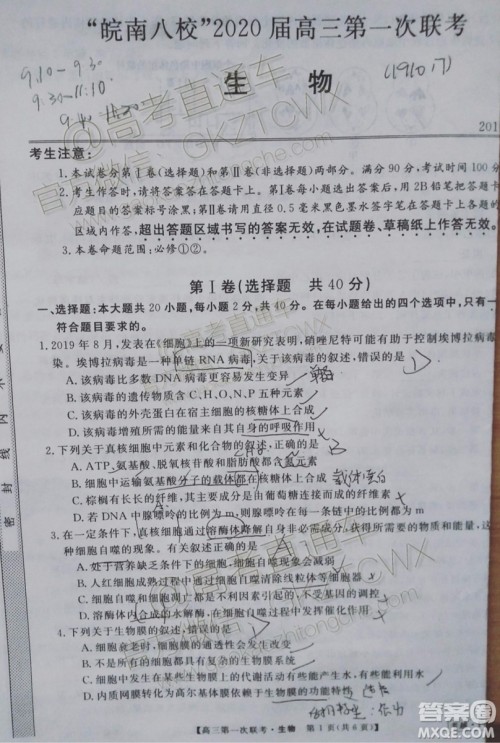 "皖南八校"2020届高三第一次联考
生 物
9.10-9.30
9.30-11.10
201
考生注意:
1.本试卷分第Ⅰ卷(选择题)和第Ⅱ卷(非选择题)两部分。满分90分,考试时间100分
2.考生作答时,请将答案答在答题卡上。第Ⅰ卷每小题选出答案后,用2B铅笔把答题卡
应题目的答案标号涂黑;第Ⅱ卷请用直径0.5毫米黑色墨水签字笔在答题卡上各题
区域内作答,超出答题区域书写的答案无效,在试题卷、草稿纸上作答无效。
3.本卷命题范围:必修①②。
第Ⅰ卷(选择题 共40分)
一、选择题:本大题共20小题,每小题2分,共40分。在每小题给出的四个选项中,只有一
符合题目要求的。
1.2019年8月,发表在《细胞》上的一项新研究表明,硝唑尼特可能有助于控制埃博拉病毒
染。埃博拉病毒是一种单链RNA病毒,关于该病毒的叙述,错误的是
A.该病毒比多数DNA病毒更容易发生变异
B.该病毒的遗传物质含C、H、O、N、P五种元素
C.该病毒的外壳蛋白在宿主细胞的核糖体上合成
D.该病毒增殖所需的能量来自其自身的呼吸作用
2.下列关于真核细胞中元素和化合物的叙述,正确的是
A.ATP、氨基酸、脱氧核苷酸和脂肪酸都含氮元素
B.细胞膜上运输氨基酸分子的载体都在核糖体上合成
载体蛋白
C.棕榈有长长的纤维,其主要成分是由葡萄糖连接而成的纤维素
D.若DNA中腺嘌呤的比例为m,则每一条链中腺嘌呤的比例也一定为m
3.在一定条件下,真核细胞通过溶酶体降解自身非必需成分,以获得所需要的物质和能量,这
种细胞自噬的现象。有关叙述正确的是
A.处于营养缺乏条件下的细胞,细胞自噬现象会减弱
B.人红细胞成熟过程可能通过细胞自噬清除线粒体等细胞器
C.细胞自噬和细胞凋亡都是不利因素引起的,不受基因的调控
D.溶酶体内合成的水解酶,在细胞自噬过程中发挥重要作用
4.下列关于生物膜的叙述,错误的是
A.细胞衰老时,细胞膜的通透性会发生改变
B.不是所有的细胞都具有复杂的生物膜系统
C.在叶绿体的生物膜上的代谢活动有些能产生水,有些能利用水
D.内质网膜转化为高尔基体膜依赖于生物膜的功能特性
【高三第一次联考·生物 第1页(共6页)】
密封线内不要
@高考直通车
GKZTCWX
答案圈
MXQE.COM